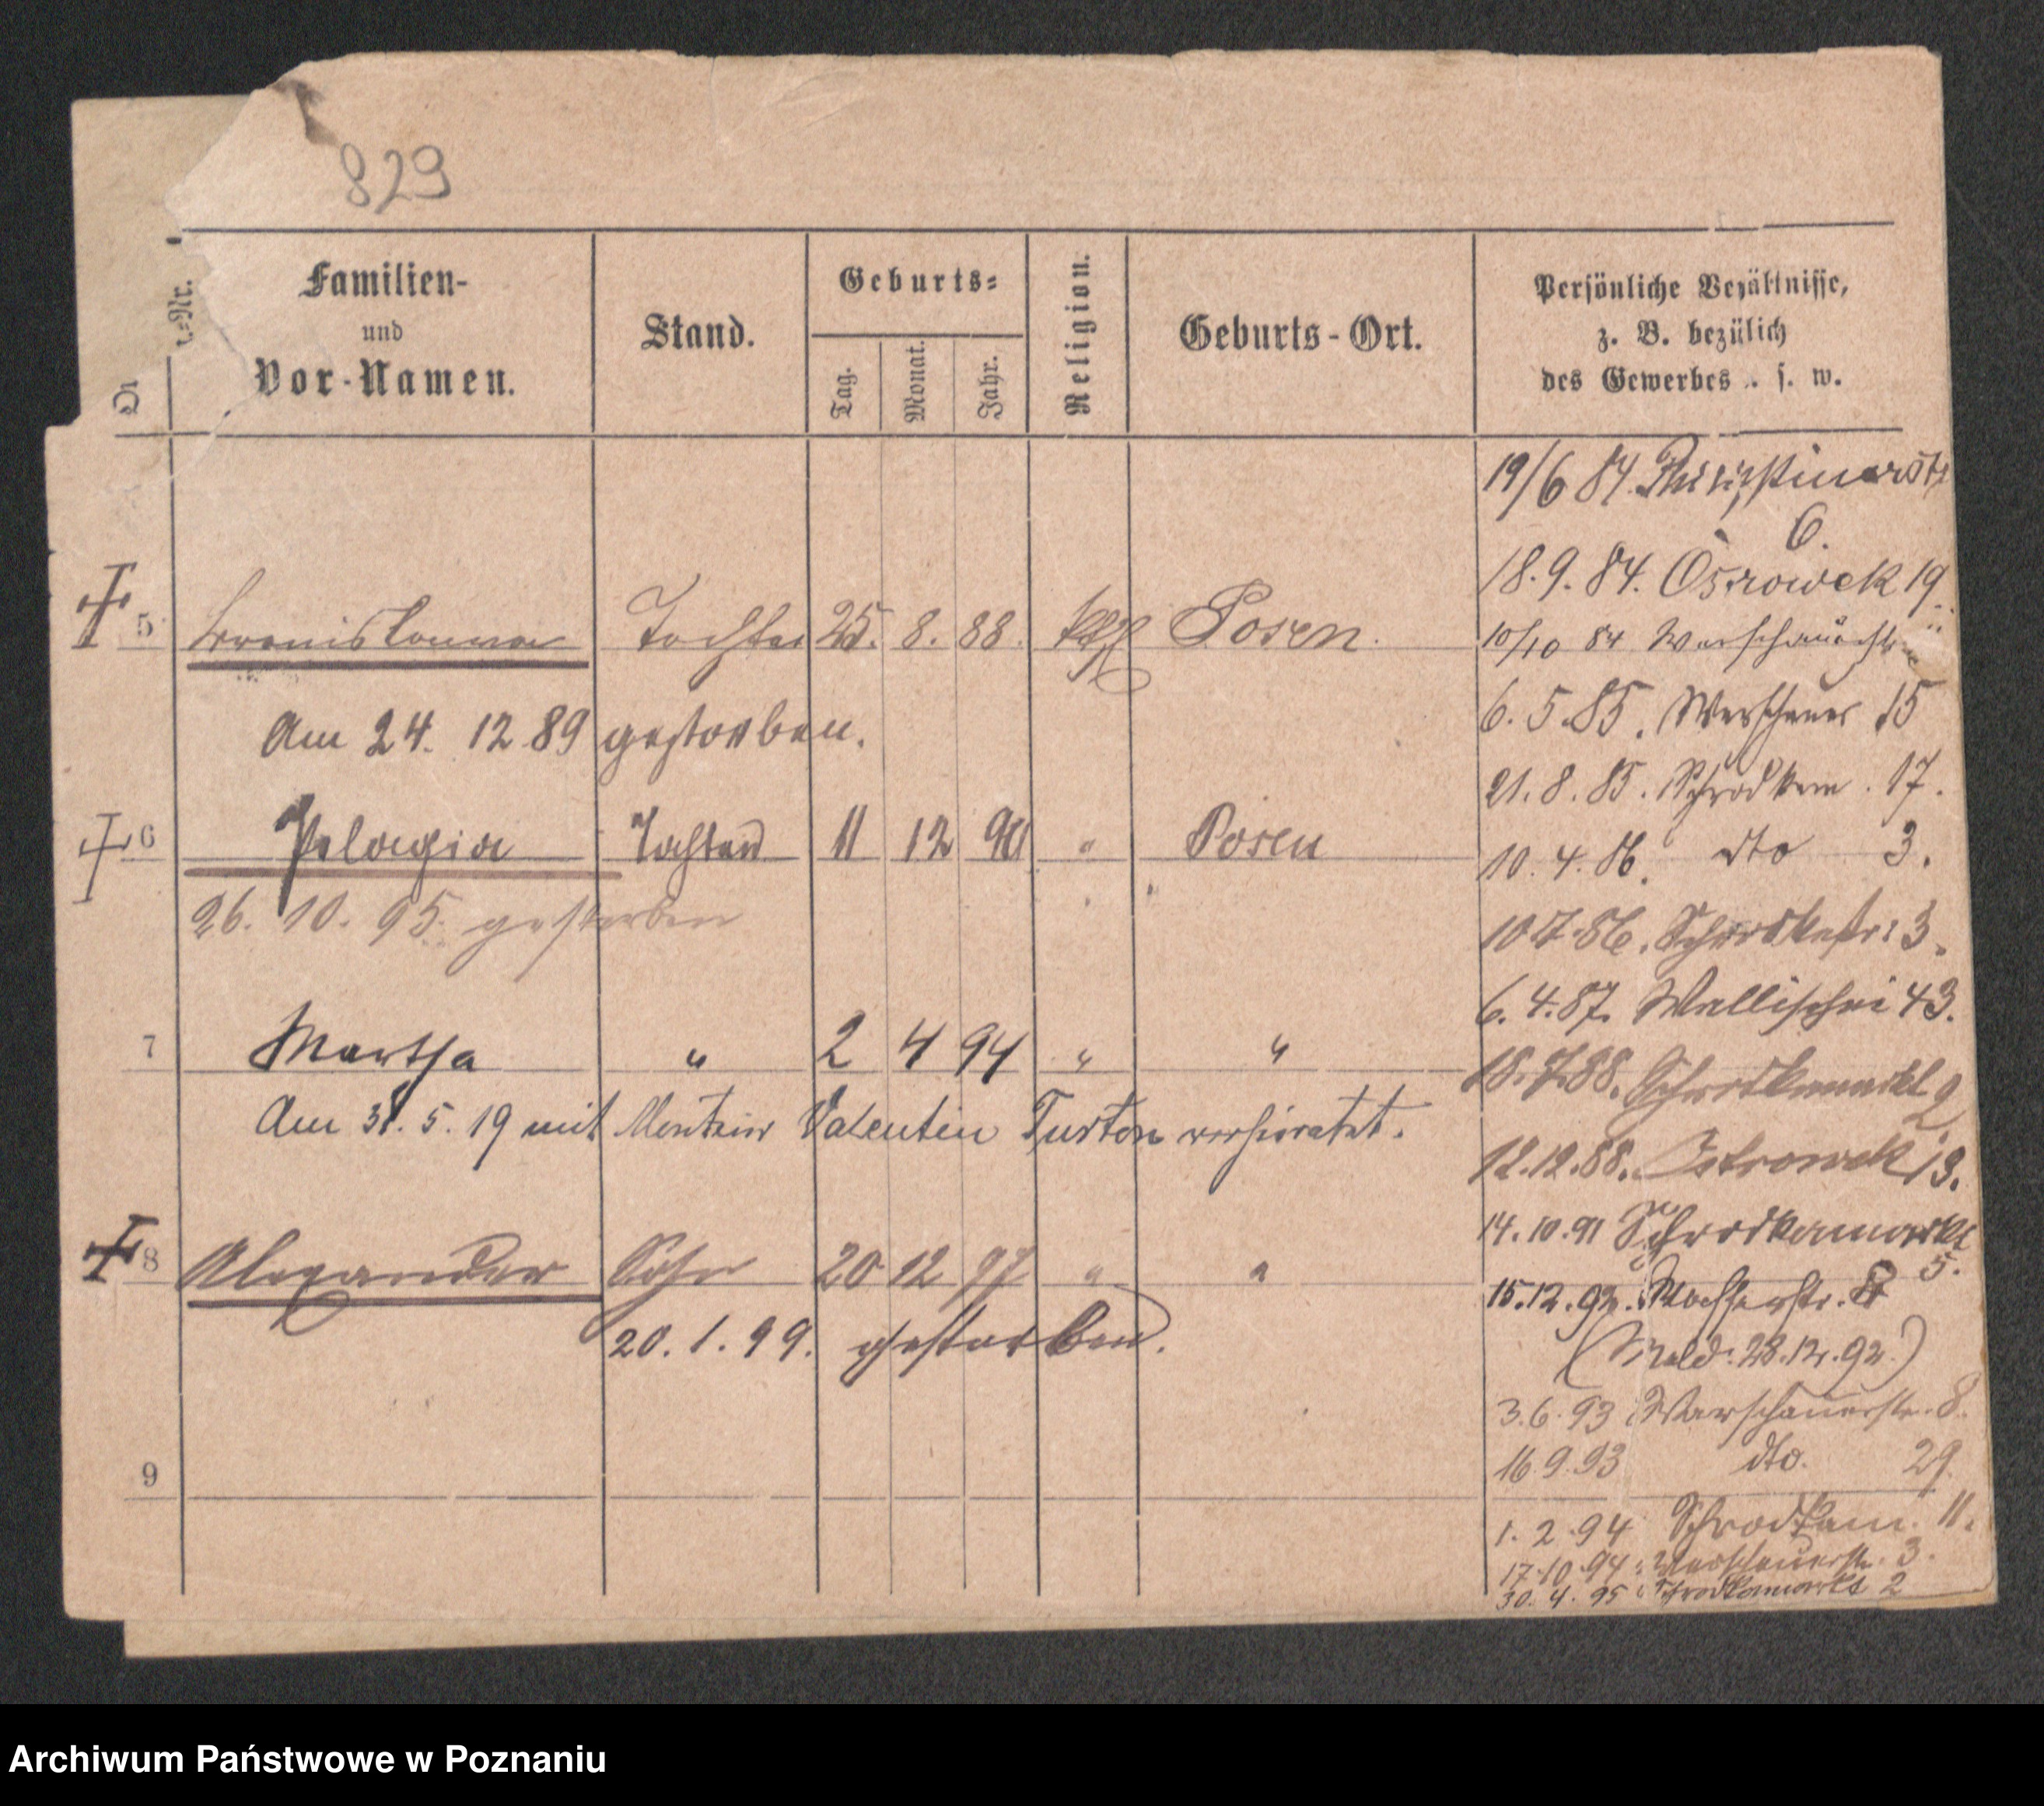 829
r.=Nr.
Familien-
und
Vor-Namen.
Stand.
Geburts=
Tag.
Monat.
Jahr.
Religion.
Geburts-Ort.
Persönliche Verhältnisse,
z. B. bezülich
des Gewerbes . s. w.
19/6 84.
6.
18.9.84. Ostrowek 19
5 Tochter 25. 8. 88. kath Posen.
10/10 84
Am 24. 12 89 gestorben.
6.5.85. Warschauer 15
21.8.85. Schrodkam. 17.
6 Pelagia Tochter 11 12 90 " Posen
10.4.86. dto 3.
26. 10. 95. gestorben
10.7.86. Schrodkastr: 3.
6.4.87. Wallischei 43.
7 Martha " 2 4 94 " "
18.7.88. Schrodkamarkt 2
Am 31. 5. 19 mit Valentin verheiratet.
12.12.88. Ostrowek 13.
8 Alexander Sohn 20 12 97 " "
14.10.91 Schrodkamarkt
5.
15.12.92. 8
20. 1. 99. gestorben.
(Meld: 28.12.92.)
3.6.93 Warschauerstr. 8.
9
16 9.93 dto. 29.
1. 2 94 Schrodkam. 11.
17.10.94 Warschauerstr. 3.
30. 4. 95 Schrodkamarkt 2
Archiwum Państwowe w Poznaniu